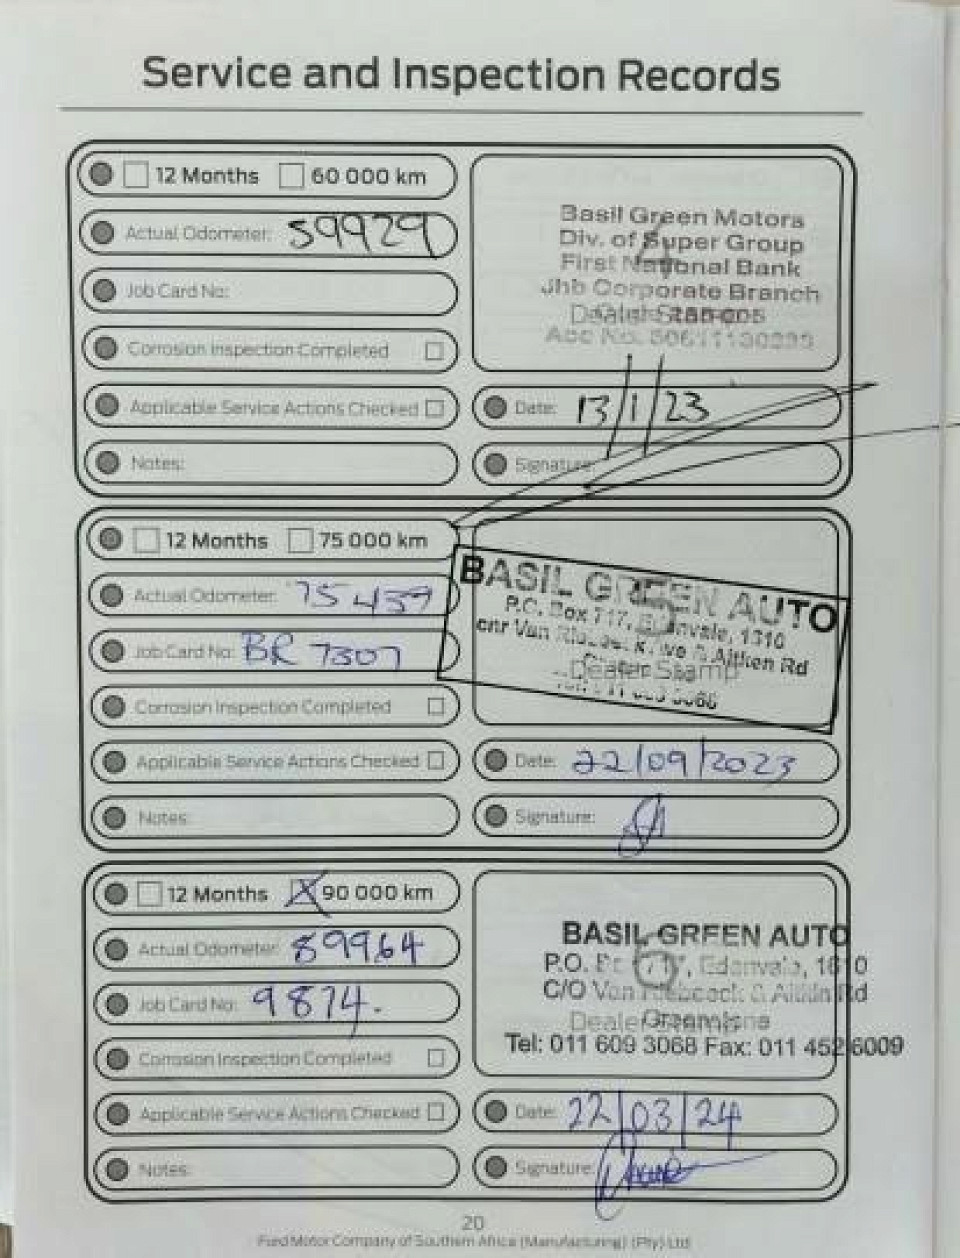 Service and Inspection Records
12 Months 60 000 km
Actual Odometer: 59929
Job Card No:
Corrosion Inspection Completed
Applicable Service Actions Checked
Notes:
Basil Green Motors
Div. of Super Group
First National Bank
Jhb Corporate Branch
Dealer Stamp
Acc No.
Date: 13/1/23
Signature:
12 Months 75 000 km
Actual Odometer: 75439
Job Card No: BR 7307
Corrosion Inspection Completed
Applicable Service Actions Checked
Notes:
BASIL GREEN AUTO
P.O. Box 717, Edenvale, 1610
cnr Van Riebeeck Ave & Aitken Rd
Dealer Stamp
Date: 22/09/2023
Signature:
12 Months 90 000 km
Actual Odometer: 89964
Job Card No: 9874.
Corrosion Inspection Completed
Applicable Service Actions Checked
Notes:
BASIL GREEN AUTO
P.O. Box 717, Edenvale, 1610
C/O Van Riebeeck & Aitkin Rd
Dealer Stamp
Tel: 011 609 3068 Fax: 011 452 6009
Date: 22/03/24
Signature:
20
Ford Motor Company of Southern Africa (Manufacturing) (Pty) Ltd